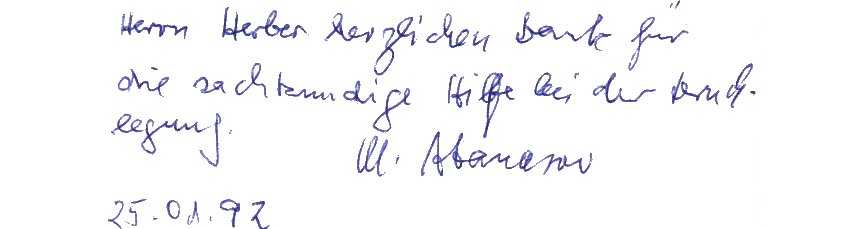 Herrn Herber herzlichen Dank für
die sachkundige Hilfe bei der Druck-
legung.
M. Atanasov
25.01.92